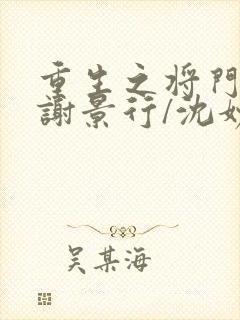 重生之将門
謝景行/沈妙
吴某海